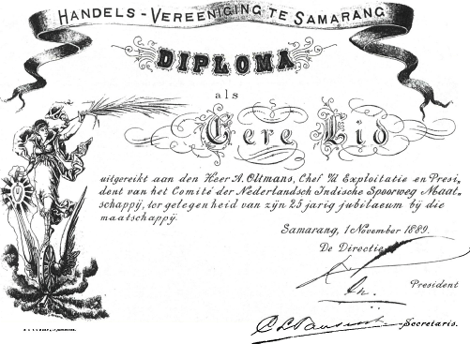 HANDELS-VEREENIGING TE SAMARANG
DIPLOMA
als
Eere Lid
uitgereikt aan den Heer A. Oltmans, Chef der Exploitatie en Presi-
dent van het Comité der Nederlandsch Indische Spoorweg Maat-
schappij, ter gelegenheid van zijn 25 jarig jubilaeum bij die
maatschappij.
Samarang, 1 November 1889.
De Directie
President
Secretaris.